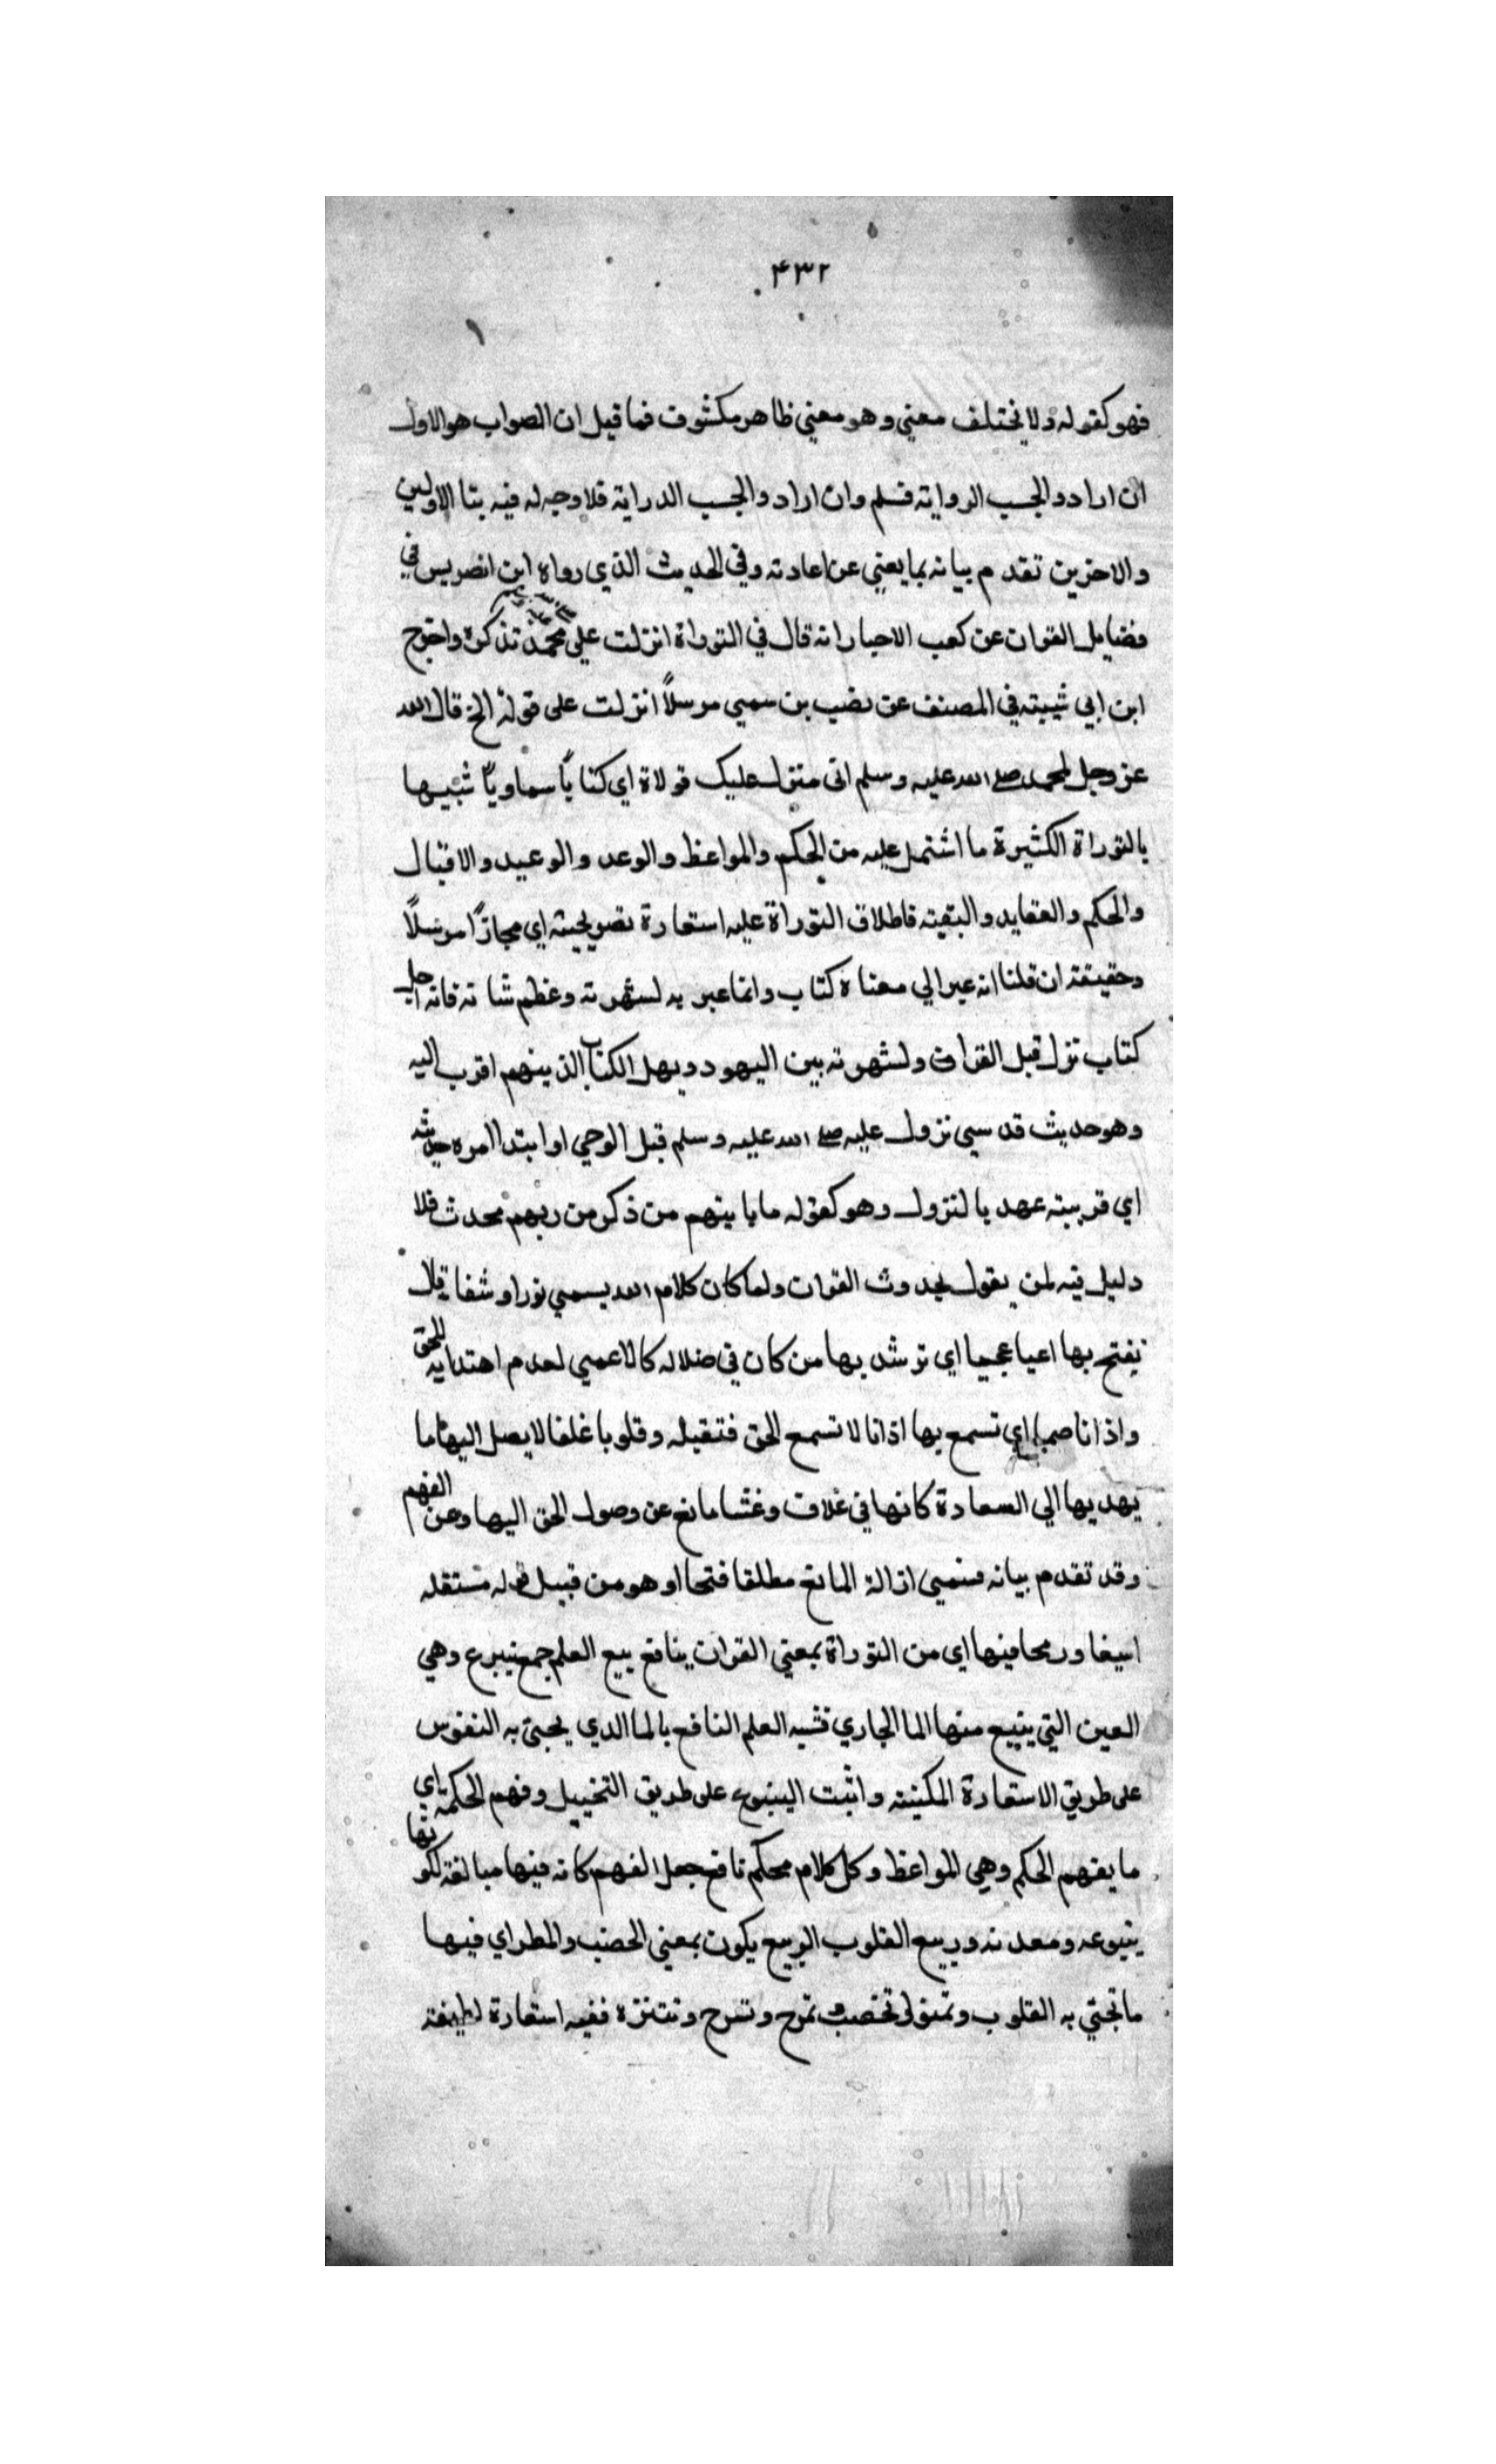 ۴۳۲
فهو كقوله ولا يختلف معني وهو معني ظاهر مكشوف فما قيل ان الصواب هو الاول
ان اراد والجسب الرواية فسلم وان اراد والجسب الدراية فلا وجه له فيه بنا الاولين
والاخرين تقدم بيانه بما يعني عن اعادته وفي الحديث الذي رواه ابن انضريس في
فضايل القران عن كعب الاحبار انه قال في التوراة انزلت علي محمد تذكرة واخرج
ابن ابي شيبته في المصنف عن نضب بن سمي مرسلاً انزلت على قوله الخ قال الله
عز وجل لمحمد صلى الله عليه وسلم اني منزل عليك تولاة اي كتاباً سماوياً شبيها
بالتوراة الكثيرة ما اشتمل عليه من الحكم والمواعظ والوعد والوعيد والاقبال
والحكم والعقايد والبقيته فاطلاق التوراة عليه استعارة تصريحيته اي مجازاً مرسلاً
وحقيقته ان قلنا انه عبر الي معناه كتاب وانما عبر به لشهرته وعظم شانه فانه اجل
كتاب نزل قبل القران ولشهرته بين اليهود ويهل الكتاب الذينهم اقرب اليه
وهو حديث قدسي نزول عليه صلى الله عليه وسلم قبل الوحي او ابتدا امره حديثه
اي قريبته عهد بالنزول وهو كقوله ما ياتيهم من ذكر من ربهم محدث فلا
دليل فيه لمن يقول بحدوث القران ولما كان كلام الله يسمي نورا وشفا قال
نفتح بها اعيا عجميا اي ترشد بها من كان في ضلاله كالاعمي لعدم اهتدايه للحق
واذانا صما اي تسمع بها اذانا لا تسمع الحق فتقبله وقلوبا غلفا لا يصل اليها ما
يهديها الي السعادة كانها في غلاف وغشا مانع عن وصول الحق اليها وعن الفهم
وقد تقدم بيانه فسمي ازالة المانع مطلقا فتحا او هو من قبيل قوله مستقله
اسيفا ورمحا فيها اي من التوراة بمعني القران ينافع بيع العلم جمع ينبرع وهي
العين التي ينبع منها الما الجاري فشبه العلم النافع بالما الدي يحيى به النفوس
على طريق الاستعارة المكنيته واثبت الينبوع على طريق التخييل وفهم الحكمة اي
ما يفهم الحكم وهي المواعظ وكل كلام محكم نافع جعل الفهم كانه فيها مبالغة لكونها
ينبوعه ومعدنه وربيع القلوب الربيع يكون بمعني الخصب والمطر اي فيها
ما تجتي به القلوب وتخصب تمرح وتسرح وتتنزه ففيه استعارة لطيفته